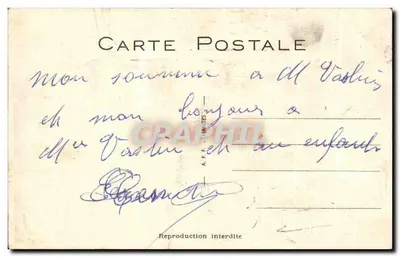 CARTE POSTALE
mon souvenir a M Vaslin
et mon bonjour a
Me Vaslin et au enfants
Reproduction interdite